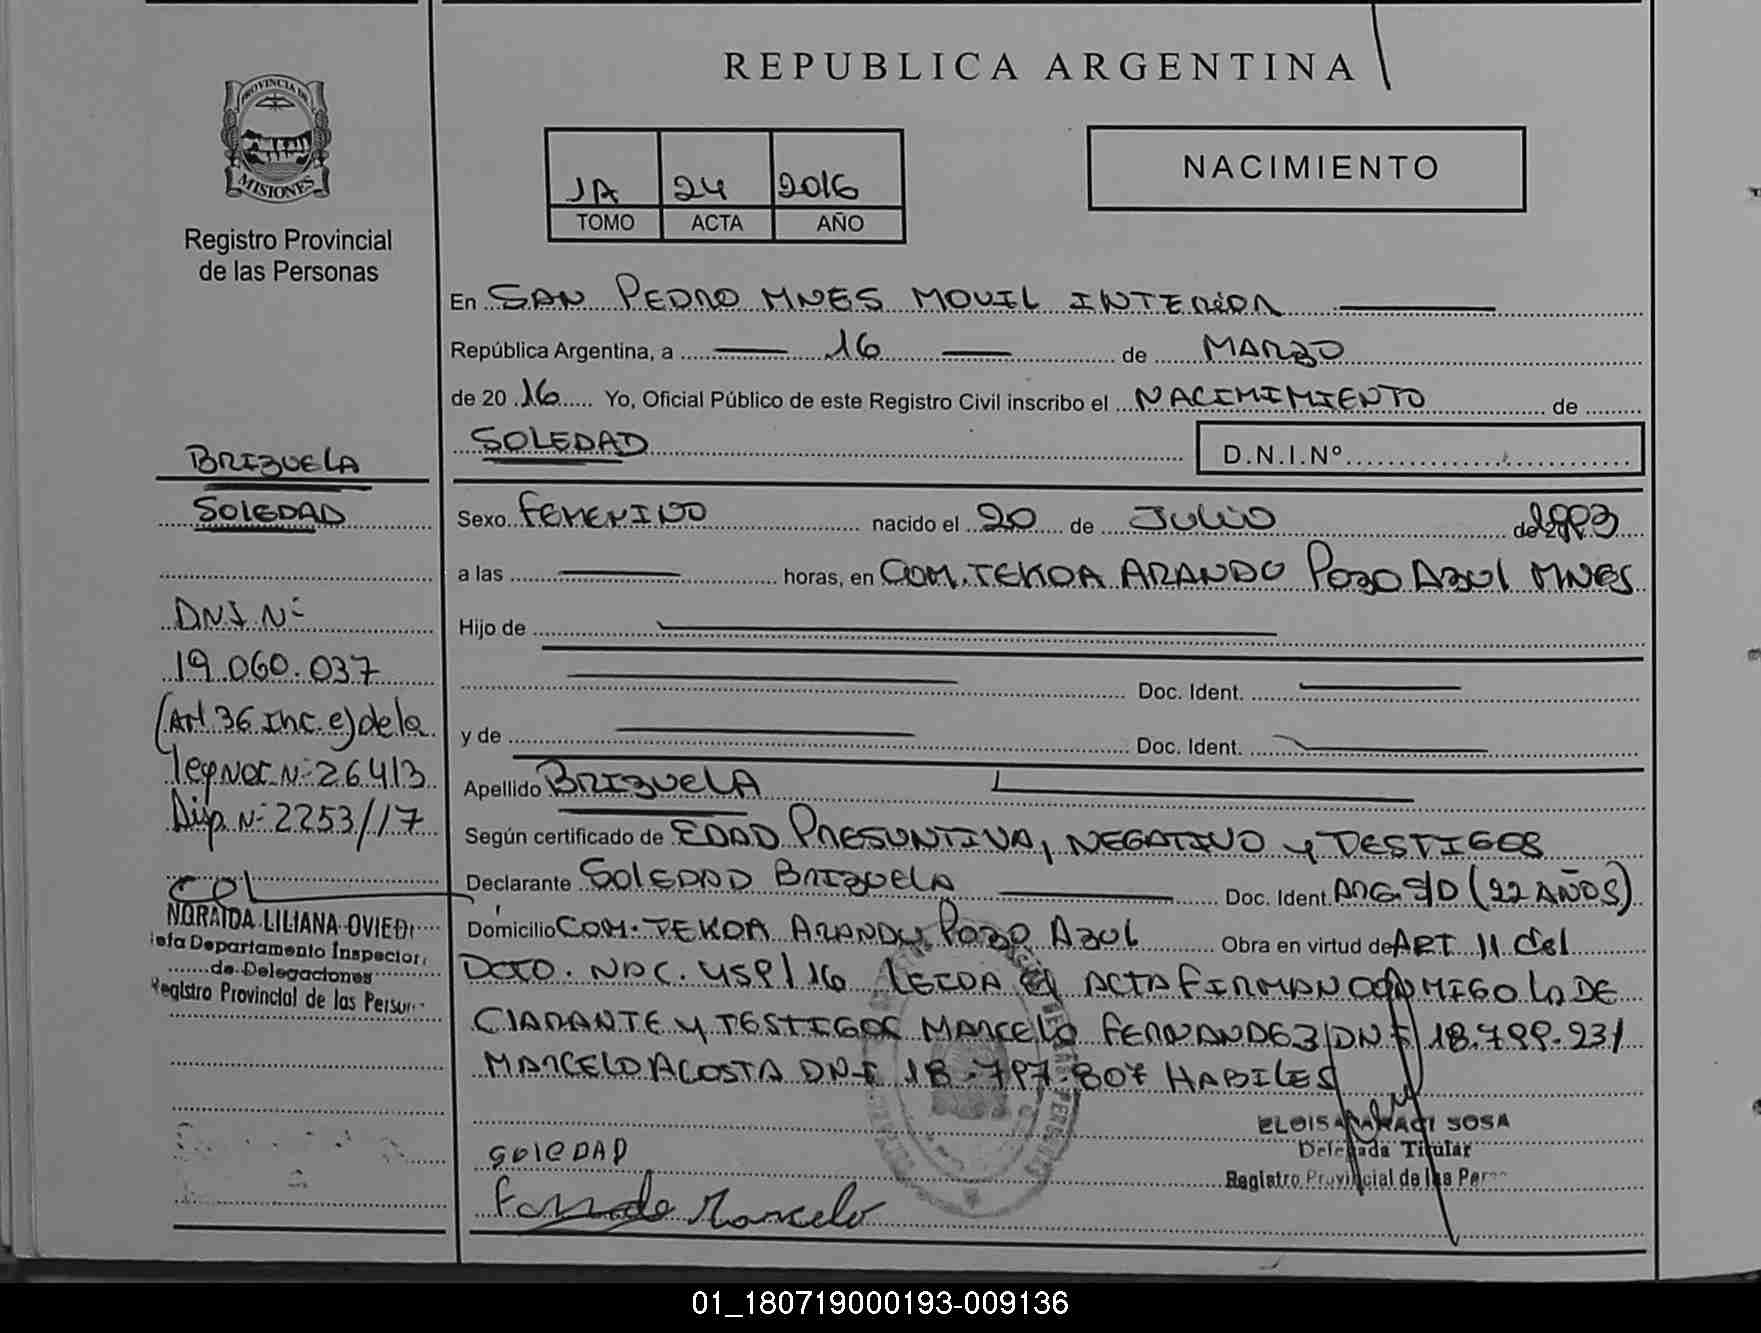 REPUBLICA ARGENTINA
PROVINCIA DE
MISIONES
Registro Provincial
de las Personas
1A 24 2016
TOMO ACTA AÑO
NACIMIENTO
En SAN PEDRO MNES MOVIL INTERIOR
República Argentina, a 16 de MARZO
de 20 16 Yo, Oficial Público de este Registro Civil inscribo el NACIMIMIENTO de
SOLEDAD
D.N.I.Nº
BRIZUELA
SOLEDAD
DNI Nº
19.060.037
(Art 36 Inc. e) de la
ley Nac. Nº 26413
Disp. Nº 2253//17
NORAIDA LILIANA OVIED
Jefa Departamento Inspector
de Delegaciones
Registro Provincial de las Person
Sexo FEMENINO nacido el 20 de JULIO de 1993
a las horas, en COM. TEKOA ARANDU POZO AZUL MNES
Hijo de
Doc. Ident.
y de Doc. Ident.
Apellido BRIZUELA
Según certificado de EDAD PRESUNTIVA, NEGATIVO y TESTIGOS
Declarante SOLEDAD BRIZUELA Doc. Ident. ARG. S/D (22 AÑOS)
Domicilio COM. TEKOA ARANDU POZO AZUL Obra en virtud de ART. 11 del
DCTO. NAC. 459/16 LEIDA el ACTA FIRMAN CONMIGO LA DE
CLARANTE y TESTIGOS MARCELO FERNANDEZ DNI 18.799.231
MARCELO ACOSTA DNI 18.797.807 HABILES
SOLEDAD
Marcelo
ELOISA SOSA
Delegada Titular
Registro Provincial de las Per
01_180719000193-009136